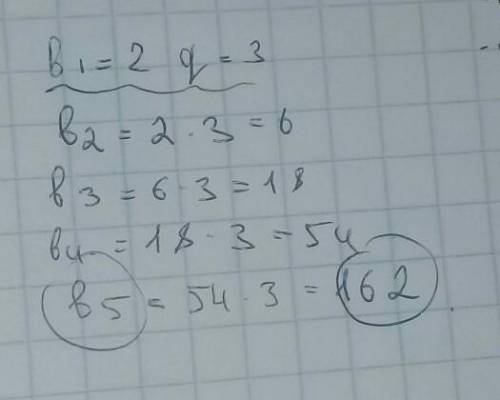 в1 = 2 q = 3
в2 = 2 · 3 = 6
в3 = 6 · 3 = 18
в4 = 18 · 3 = 54
в5 = 54 · 3 = 162